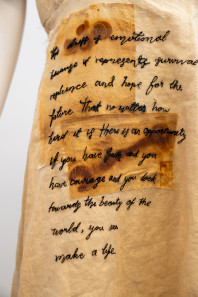 of emotional
represents survival
and hope for the
future That no matter how
hard it is there is an opportunity
if you have faith and you
have courage and you look
towards the beauty of the
world, you can
make a life